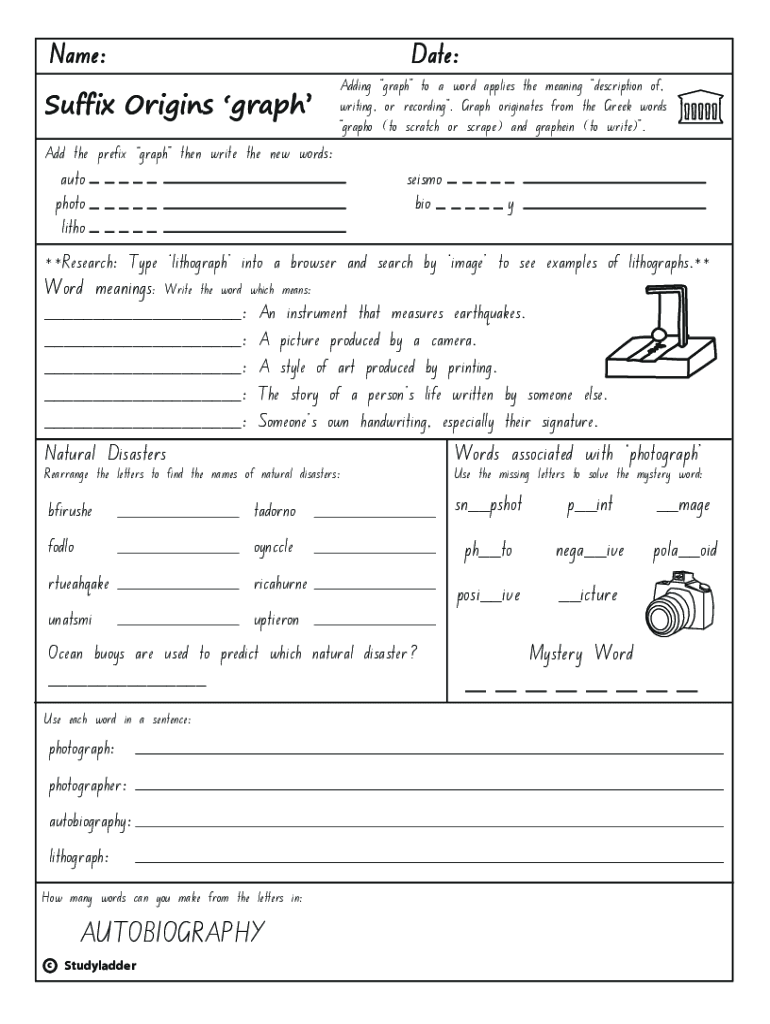 Name: Date:
Suffix Origins 'graph'
Adding "graph" to a word applies the meaning "description of,
writing, or recording". Graph originates from the Greek words
"grapho (to scratch or scrape) and graphein (to write)".
Add the prefix "graph" then write the new words:
auto _ _ _ _ _ ____________________ seismo _ _ _ _ _ ____________________
photo _ _ _ _ _ ____________________ bio _ _ _ _ _ y ____________________
litho _ _ _ _ _ ____________________
**Research: Type 'lithograph' into a browser and search by 'image' to see examples of lithographs.**
Word meanings: Write the word which means:
____________________: An instrument that measures earthquakes.
____________________: A picture produced by a camera.
____________________: A style of art produced by printing.
____________________: The story of a person's life written by someone else.
____________________: Someone's own handwriting, especially their signature.
Natural Disasters
Rearrange the letters to find the names of natural disasters:
bfirushe ____________ tadorno ____________
fodlo ____________ oynccle ____________
rtueahqake ____________ ricahurne ____________
unatsmi ____________ uptieron ____________
Ocean buoys are used to predict which natural disaster?
________________
Words associated with 'photograph'
Use the missing letters to solve the mystery word:
sn__pshot p__int __mage
ph__to nega__ive pola__oid
posi__ive __icture
Mystery Word
_ _ _ _ _ _ _ _
Use each word in a sentence:
photograph: ____________________
photographer: ____________________
autobiography: ____________________
lithograph: ____________________
How many words can you make from the letters in:
AUTOBIOGRAPHY
© Studyladder